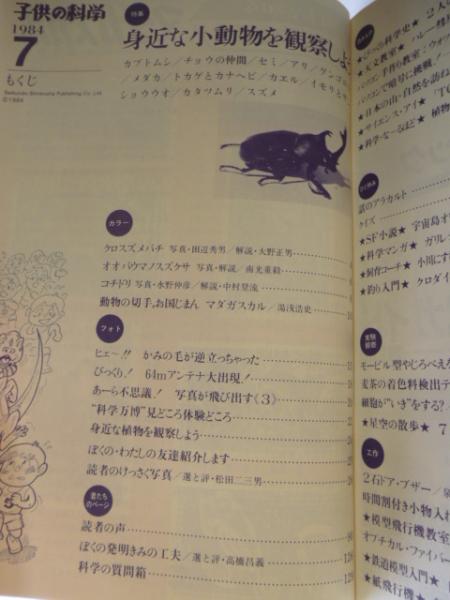 子供の科学
1984
7
もくじ
Seibundo Shinkosha Publishing Co. Ltd.
©1984
特集
身近な小動物を観察しよ
カブトムシ/チョウの仲間/セミ/アリ/ゲンゴ
/メダカ/トカゲとカナヘビ/カエル/イモリとサ
ショウウオ/カタツムリ/スズメ
カラー
クロスズメバチ 写真・田辺秀男/解説・大野正男
オオバウマノスズクサ 写真・解説/南光重毅
コチドリ 写真・水野仲彦/解説・中村登流
動物の切手、お国じまん マダガスカル/湯浅浩史
フォト
ヒェ〜!! かみの毛が逆立っちゃった
びっくり! 64mアンテナ大出現!
あーら不思議! 写真が飛び出す《3》
“科学万博”見どころ体験どころ
身近な植物を観察しよう
ぼくの・わたしの友達紹介します
読者のけっさく写真/選と評・松田二三男
君たちのページ
読者の声
ぼくの発明きみの工夫/選と評・高橋昌義
科学の質問箱
びっくり科学史★2人
★天文教室★ハレー彗
パソコン手作り教室:ウォ
パソコンで暗号に挑戦!
★日本の山・自然を訪ね
★サイエンス・アイ★「T
★科学・なーるほど★植物
話のアラカルト
クイズ
★SF小説★宇宙島オ
★科学マンガ★ガリレ
★飼育コーチ★小川にす
★釣り入門★クロダイ
実験
モービル型やじろべえ
麦茶の着色料検出テ
細胞が“いき”をする?
★星空の散歩★7
工作
2石ドア・ブザー/
時間割付き小物入れ
★模型飛行機教室
オプチカル・ファイバー
★鉄道模型入門★
★紙飛行機★